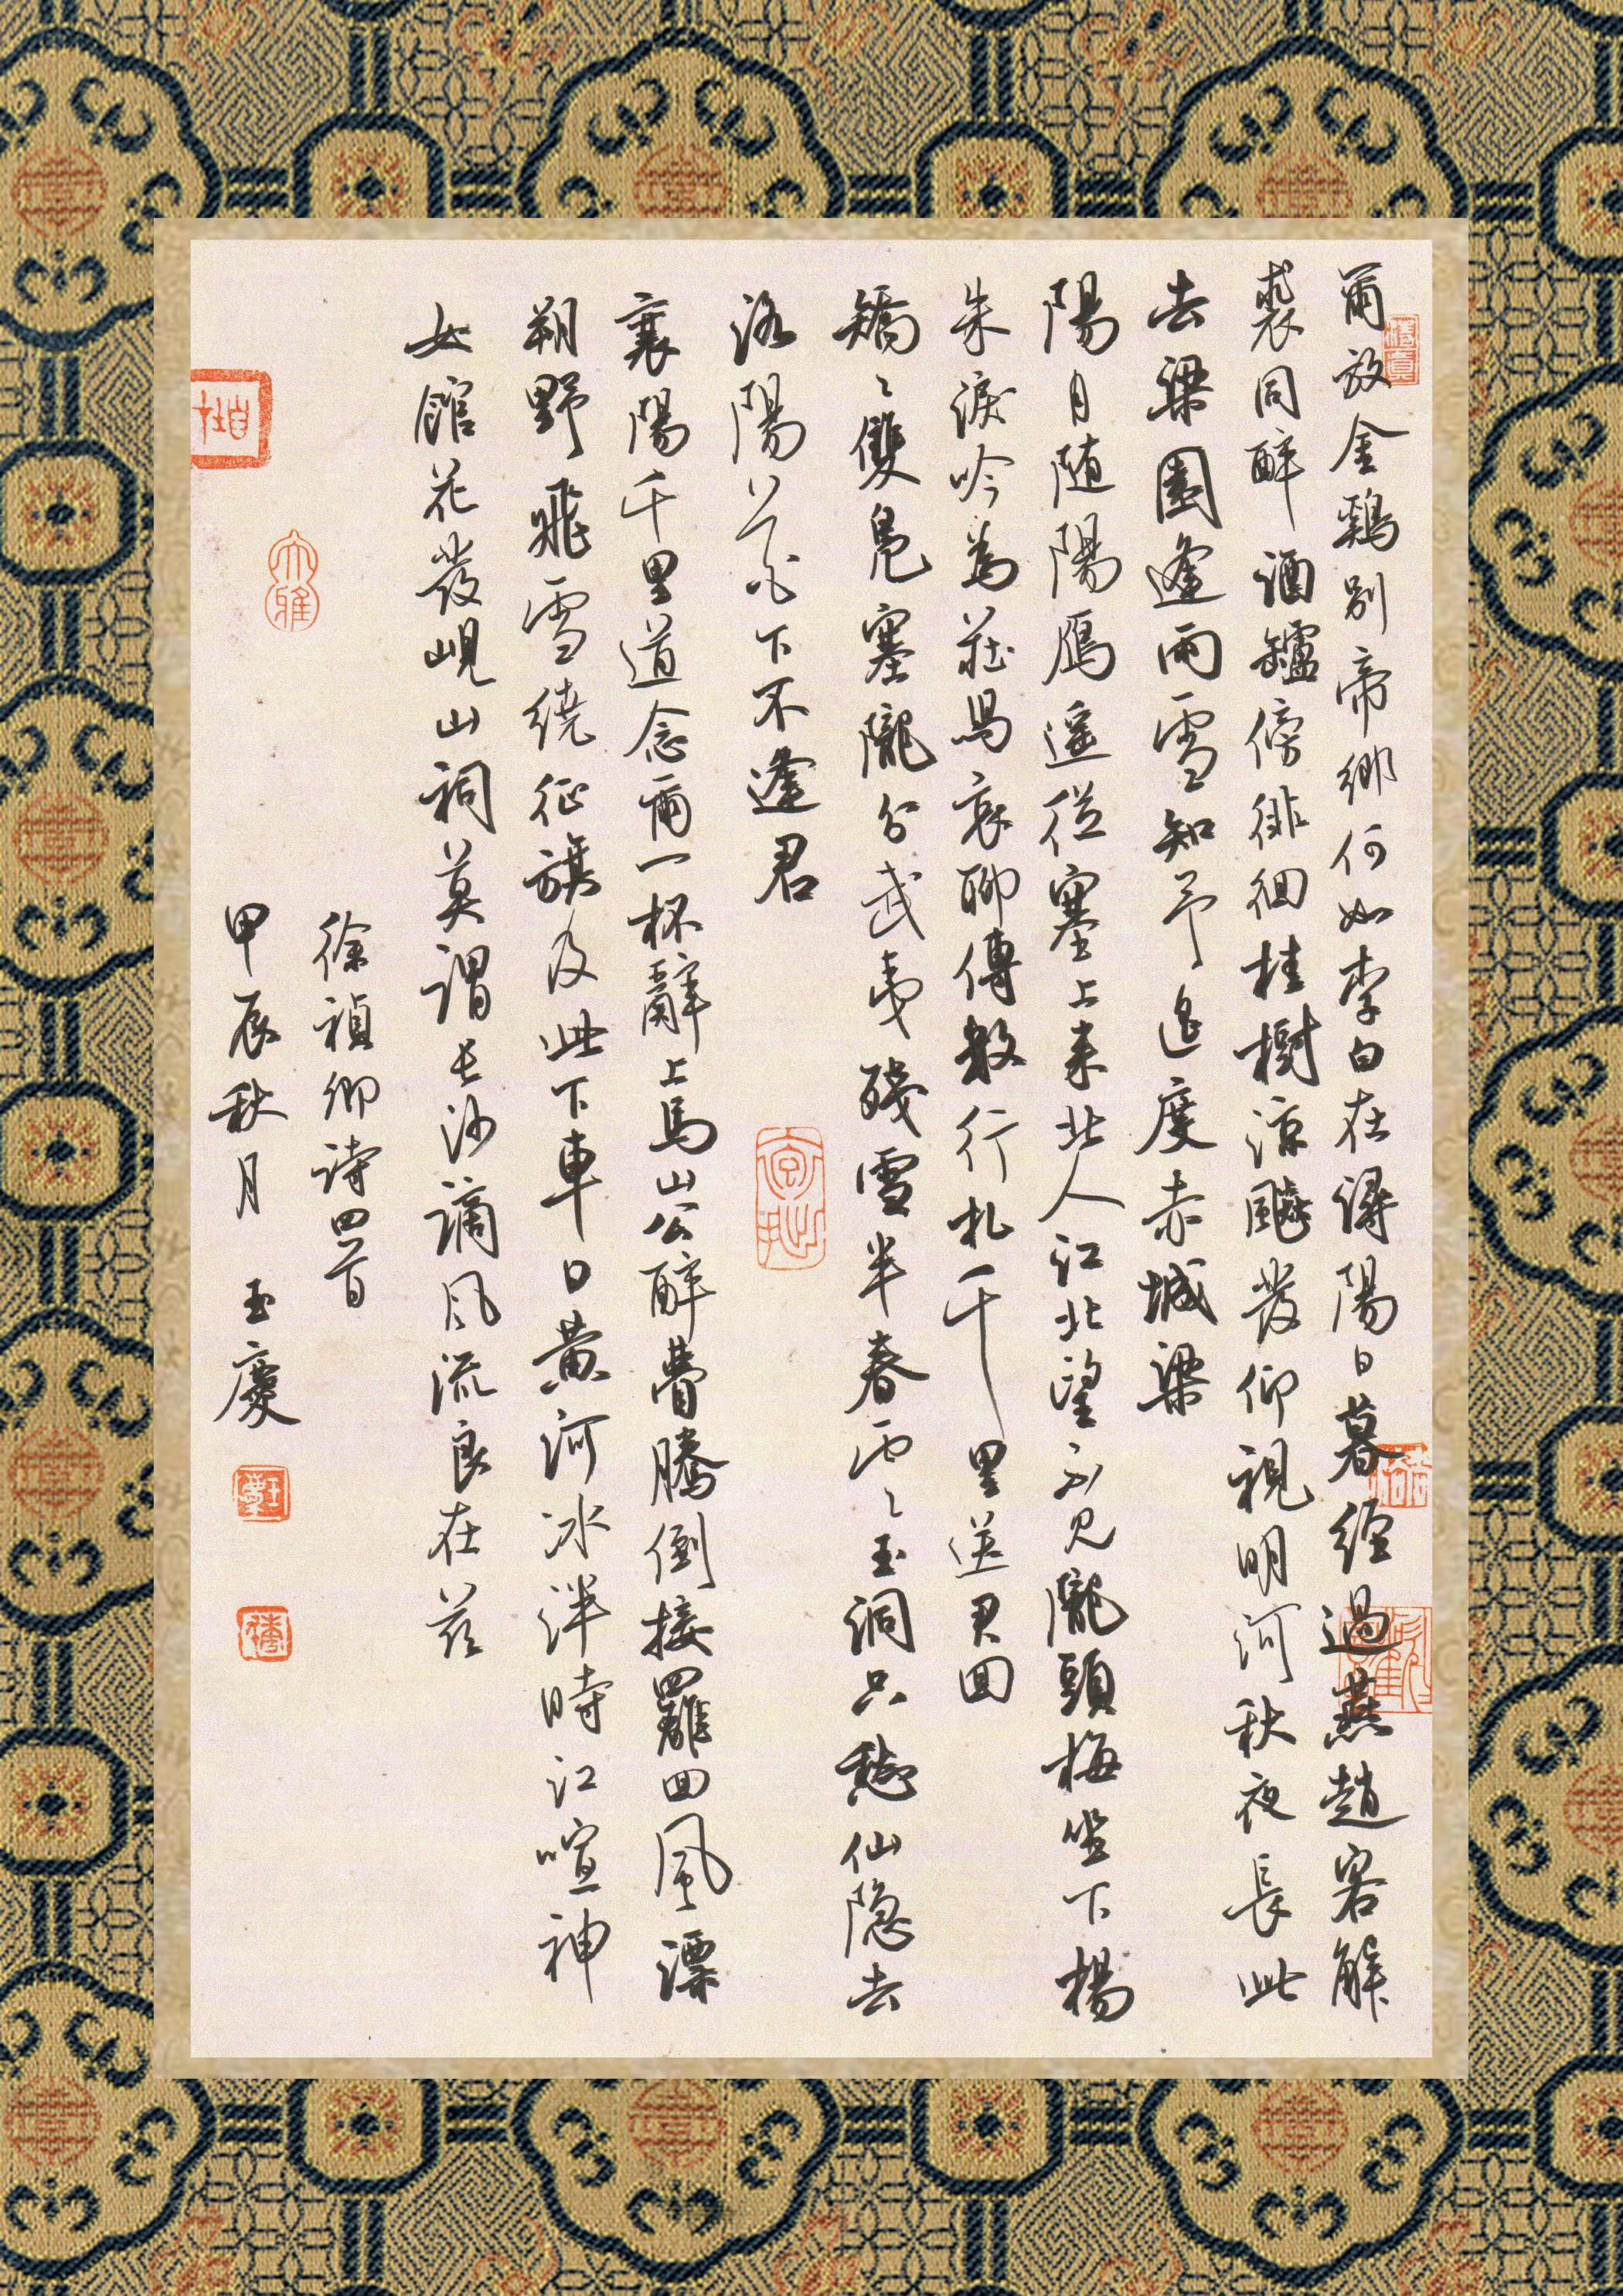 爾放金鷄別帝鄉何如李白在潯陽日暮經過燕趙客解
裘同醉酒罏傍徘徊桂樹涼飈發仰視明河秋夜長此
去梁園逢雨雪知予遥度赤城梁
陽月随陽雁遥從塞上来北人江北望不見隴頭梅坐下楊
朱淚吟為莊舄哀聊傳數行札千里送君回
矯〻雙鳧塞隴分武夷殘雪半春雲〻玉洞只愁仙隐去
洛陽花下不逢君
襄陽千里道念爾一杯辭上馬山公醉瞢騰倒接䍦回風漂
朔野飛雪繞征旗及此下車日黄河冰泮時江喧神
女館花發峴山祠莫謂長沙謫風流良在兹
徐禎卿詩四首
甲辰秋月 玉慶
大雅